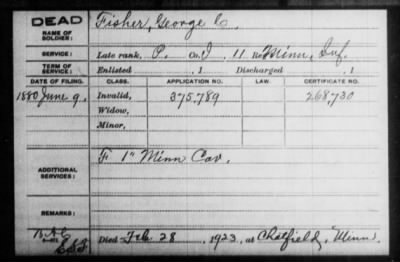 DEAD
NAME OF SOLDIER:
Fisher, George C.
SERVICE:
Late rank, P. Co. I, 11 Re Minn. Inf.
TERM OF SERVICE:
Enlisted , 1 Discharged , 1
DATE OF FILING. CLASS. APPLICATION NO. LAW. CERTIFICATE NO.
1880 June 9, Invalid, 375,789 268,730
Widow,
Minor,
ADDITIONAL SERVICES:
F 1" Minn Cav.
REMARKS:
Died Feb 28 1923, at Chatfield, Minn.